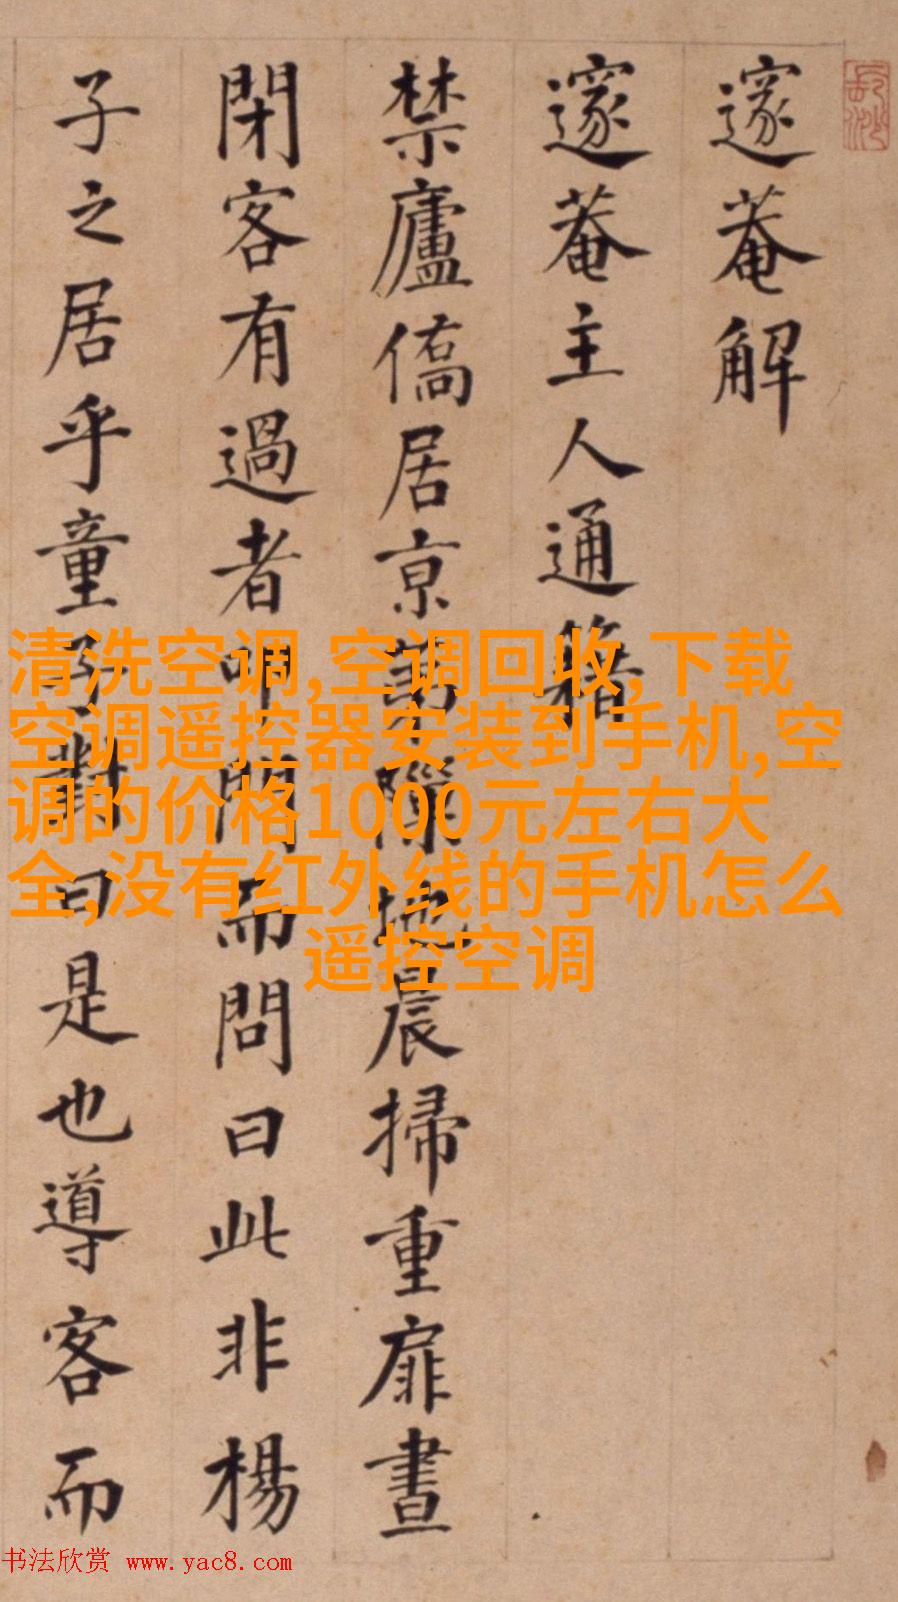 邃菴解
邃菴主人通籍
禁廬僑居京第隙地晨掃重扉晝
閉客有過者叩門而問曰此非楊
子之居乎童子對曰是也導客而
清洗空调,空调回收,下载
空调遥控器安装到手机,空
调的价格1000元左右大
全,没有红外线的手机怎么
遥控空调
书法欣赏 www.yac8.com